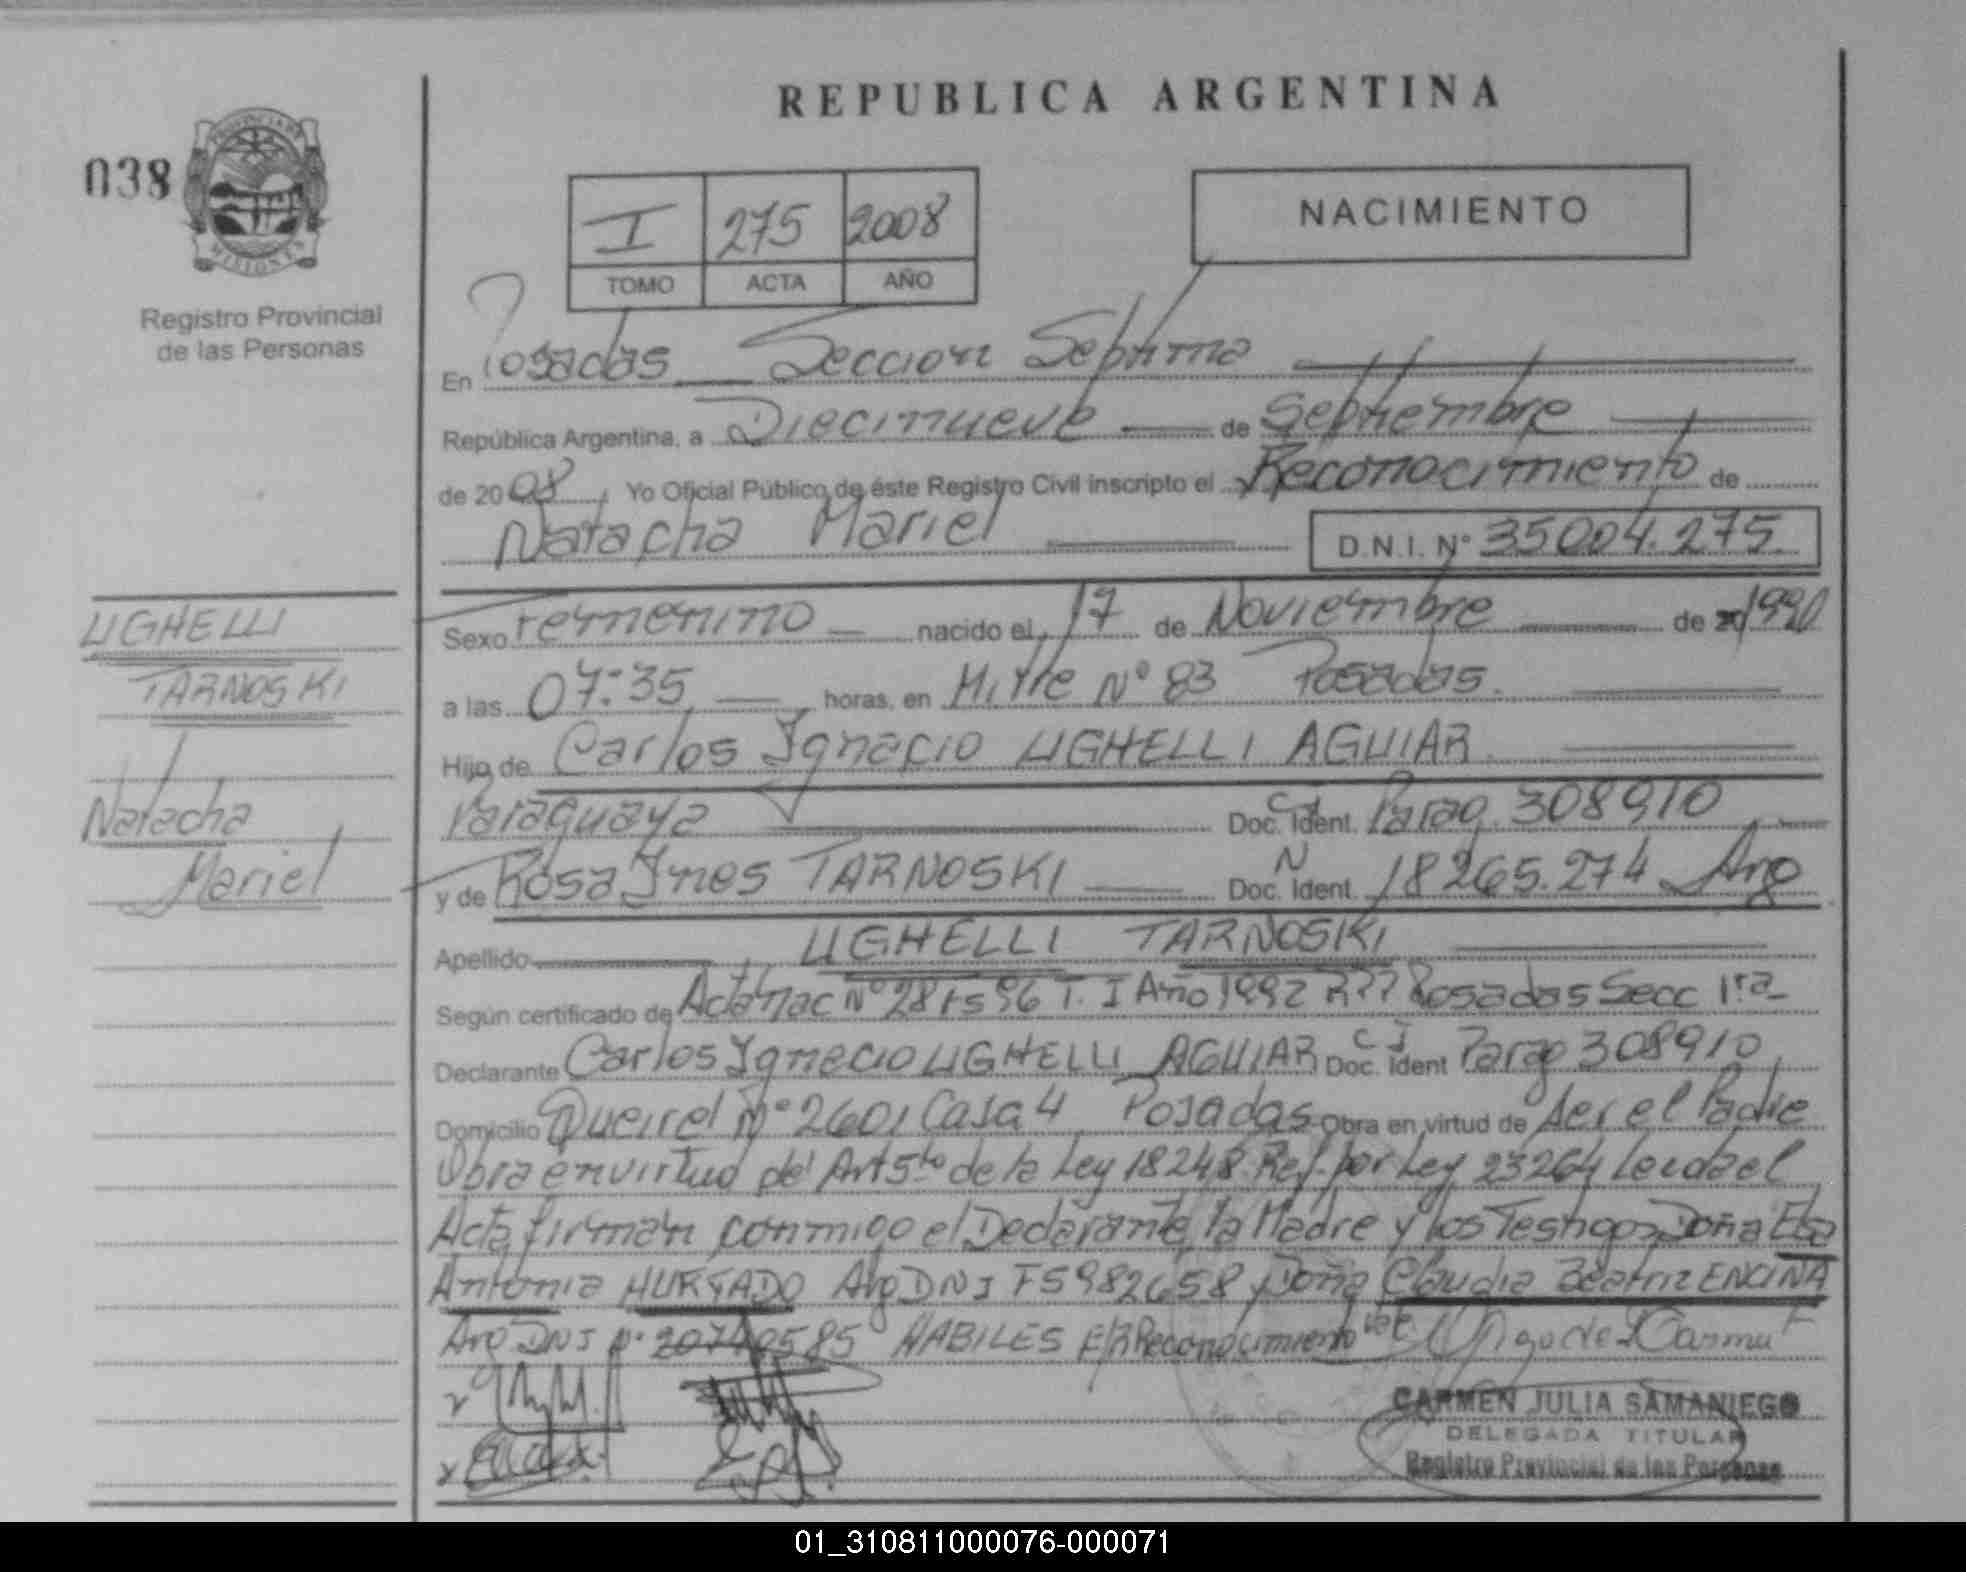 REPUBLICA ARGENTINA
038
PROVINCIA DE
MISIONES
Registro Provincial
de las Personas
I 275 2008
TOMO ACTA AÑO
NACIMIENTO
En Posadas Seccion Septima
República Argentina, a Diecinueve de Septiembre
de 2008, Yo Oficial Público de éste Registro Civil inscripto el Reconocimiento de
Natacha Mariel D.N.I. N° 35004.275
UGHELLI
TARNOSKI
Natacha
Mariel
Sexo Femenino nacido el 17 de Noviembre de 1990
a las 07:35 horas, en Mitre N° 83 Posadas.
Hijo de Carlos Ignacio UGHELLI AGUIAR
Paraguaya Doc. Ident. CI Parag. 308910
y de Rosa Ines TARNOSKI Doc. Ident. N 18265.274 Arg
Apellido UGHELLI TARNOSKI
Según certificado de Acta Nac N° 28 Fs 96 T. I Año 1992 Posadas Secc 1ra
Declarante Carlos Ignacio UGHELLI AGUIAR Doc. Ident CI Parag 308910
Domicilio Queirel N° 2601 Casa 4 Posadas Obra en virtud de Ser el Padre
Obra en virtud del Art 5to de la Ley 18248 Ref. por Ley 23264 Leida el
Acta firman conmigo el Declarante, la Madre y los Testigos Doña Elsa
Antonia HURTADO Arg DNI F5982658 y Doña Claudia Beatriz ENCINA
Arg DNI N° 20740585 HABILES E/R Reconocimiento Vale
CARMEN JULIA SAMANIEGO
DELEGADA TITULAR
Registro Provincial de las Personas
01_310811000076-000071